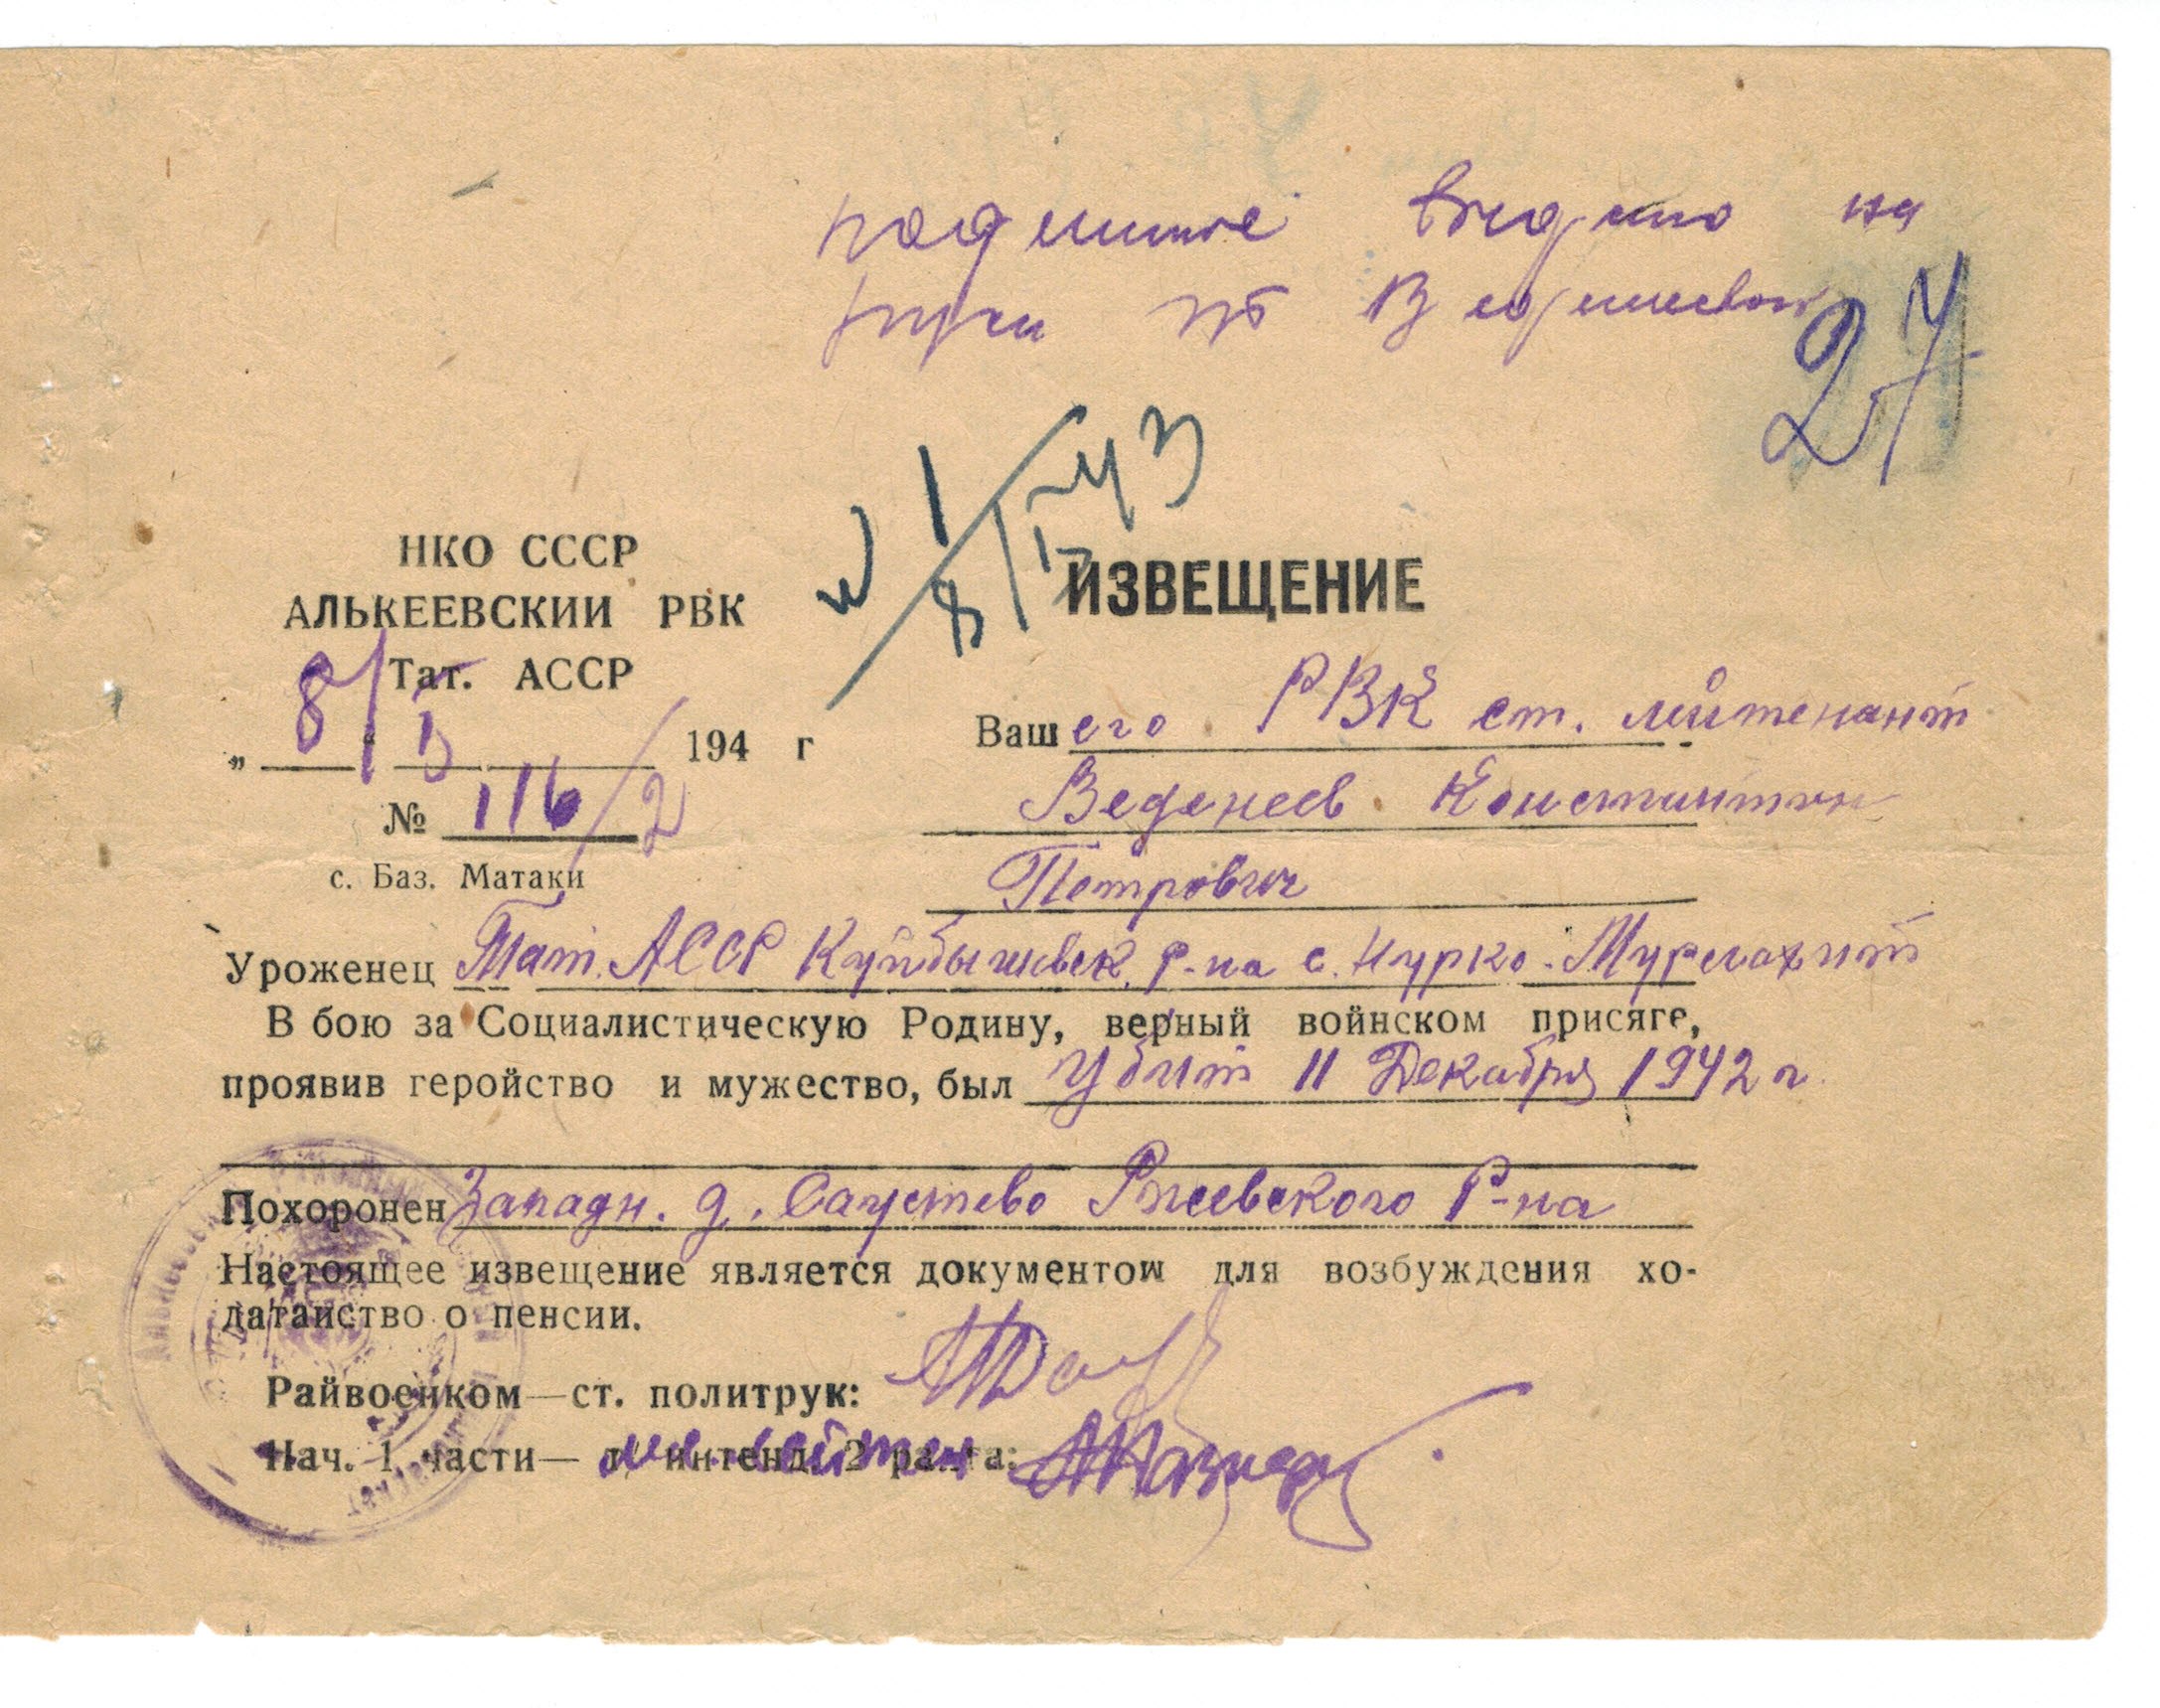 подлинное выдано на
руки
27
НКО СССР
АЛЬКЕЕВСКИИ РВК
Тат. АССР
„ 8/I 194 г
№ 116/2
с. Баз. Матаки
ИЗВЕЩЕНИЕ
Вашего РВК ст. лейтенант
Веденеев Константин
Петрович
Уроженец Тат. АССР Куйбышевск. р-на с.
В бою за Социалистическую Родину, верный войнском присяге,
проявив геройство и мужество, был убит 11 Декабря 1942 г.
Похоронен Западн. д. Ржевского Р-на
Настоящее извещение является документом для возбуждения хо-
датаиство о пенсии.
Райвоенком—ст. политрук:
Нач. 1 части— интенд. 2 ранга: